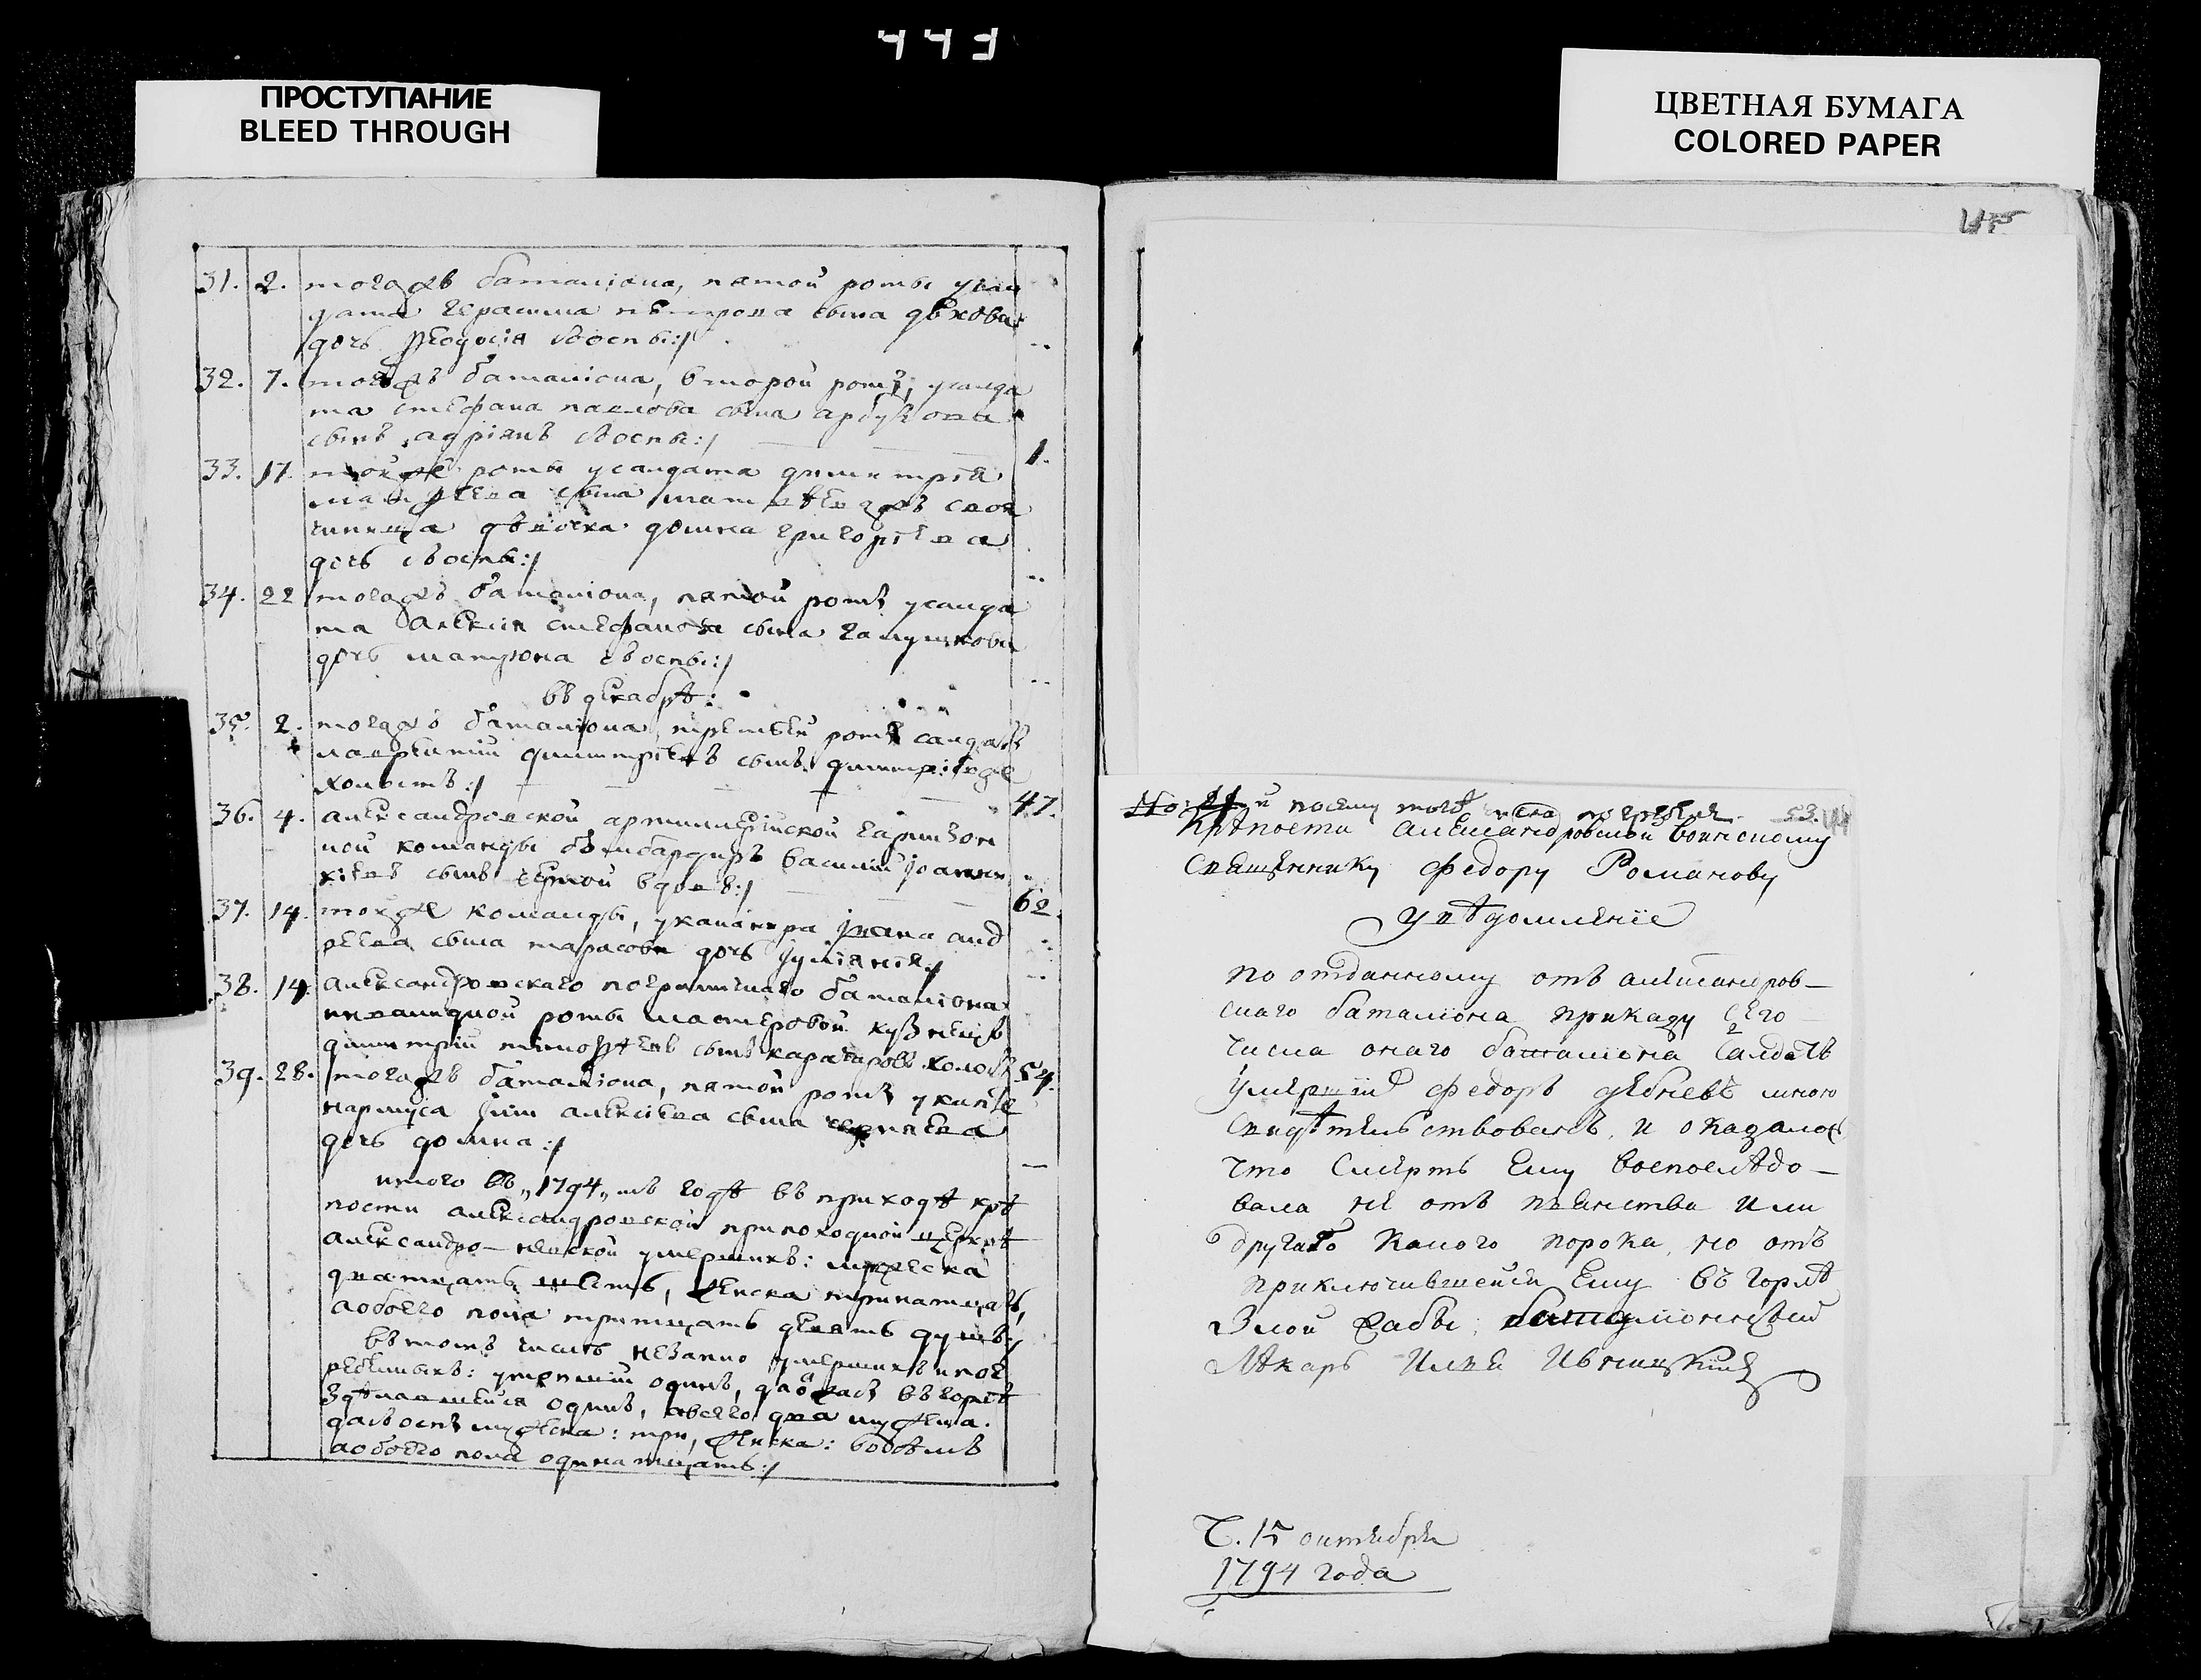 443
ПРОСТУПАНИЕ
BLEED THROUGH
ЦВЕТНАЯ БУМАГА
COLORED PAPER
31. 2. тогожъ баталiона, пятой роты усол
дата герасима петрова сына дѣхова
дочь ѳеодосiя ѿоспы:/ ..
32. 7. тогожъ баталiона, второй ротѣ, усолда
та стефана павлова сына арбузова
сынъ адрiянъ ѿоспы:/ 1.
33. 17. тойже роты усолдата димитрiя
матфеева сына матвѣева своя
ченица дѣвочка домна григорiева
дочь ѿоспы:/ ..
34. 22 тогожъ баталiона, пятой ротѣ усолда
та алексiя стефанова сына галушкова
дочь матрона ѿоспы:/ ..
въ декабрѣ:
35. 2. тогожъ баталiона, третьей ротѣ солдатъ
лаврентiй димитрiевъ сынъ
холостъ:/ 47.
36. 4. александровской артиллерiйской гарнизон
ной команды бомбардиръ василiй iоанни
кiевъ сынъ вдовъ:/ 62.
37. 14. тойже команды, уканонера iвана анд
реева сына тарасова дочь iулiянiя:/ ..
38. 14. александровскаго пограничнаго баталiона
инвалидной роты мастеровой кузнецъ
димитрiй тимоѳѣевъ сынъ карагаровъ холостъ 54.
39. 28. тогожъ баталiона, пятой ротѣ укапте
нармуса алексiева сына
дочь домна:/ —
итого въ „1794„ мъ годѣ въ приходѣ крѣ
пости александровской припоходной церквѣ
александро-невской умершихъ: мужеска
дватцать шесть, женска тринатцать,
аобоего пола тритцать девять душъ:/
въ томъ числѣ незапно умершихъ и погре
ребенныхъ: одинъ, въ горлѣ
здѣлавшейся одинъ, авсего два мужеска.
даѿоспѣ мужеска: три, женска: восѣмъ
аобоего пола одинатцать:/
No: 21 й посему того числа погребен. 53.
Крѣпости александровской воинскому
Священнику Федору Романову
Увѣдомленiе
по отданному отъ александров-
скаго баталiона приказу сего
числа онаго баталiона Салдатъ
умершiй Федоръ дебневъ мною
Свидѣтельствованъ, и оказалось
что Смерть Ему воспослѣдо-
вала не отъ пъянства или
другаго какого порока, но отъ
приключившейся Ему въ горлѣ
Злой жабы; баталiонный
Лѣкарь Илья
Ч. 15 октебря
1794 года